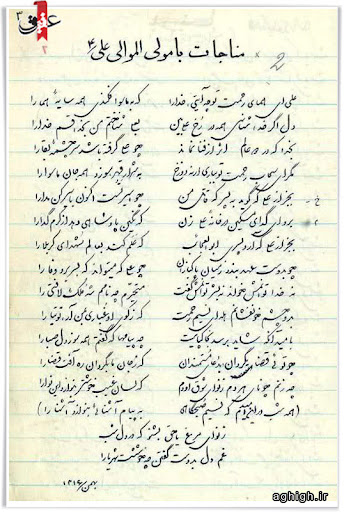 عقیق
مناجات با مولی الموالی علی ع
علی ای همای رحمت تو چه آیتی خدا را که به ماسوا فکندی همه سایه هما را
دل اگر خداشناسی همه در رخ علی بین به علی شناختم من به خدا قسم خدا را
بخدا که در دو عالم اثر از فنا نماند چو علی گرفته باشد سر چشمه بقا را
مگر ای سحاب رحمت تو بباری ار نه دوزخ به شرار قهر سوزد همه جان ماسوا را
بجز از علی که گوید به پسر که قاتل من چو اسیر تست اکنون به اسیر کن مدارا
برو ای گدای مسکین در خانه علی زن که نگین پادشاهی دهد از کرم گدا را
بجز از علی که آرد پسری ابوالعجائب که علم کند به عالم شهدای کربلا را
چو بدوست عهد بندد ز میان پاکبازان چو علی که میتواند که بسر برد وفا را
نه خدا توانمش خواند نه بشر توانمش گفت متحیرم چه نامم شه ملک لافتی را
بدو چشم خونفشانم هله ای نسیم رحمت که ز کوی او غباری بمن آر توتیا را
بامید آنکه شاید برسد بخاک پایت چه پیامها که گفتم همه سوز دل صبا را
چو توئی قضای گردان بدعای مستمندان که ز جان ما بگردان ره آفت قضا را
چه زنم چو نای هر دم ز نوای شوق او دم که لسان غیب خوشتر بنوازد این نوا را
(همه شب در این امیدم که نسیم صبحگاهی به پیام آشنائی بنوازد آشنا را)
ز نوای مرغ یا حق بشنو که در دل شب
غم دل بدوست گفتن چه خوشست شهریارا
بهمن
aghigh.ir